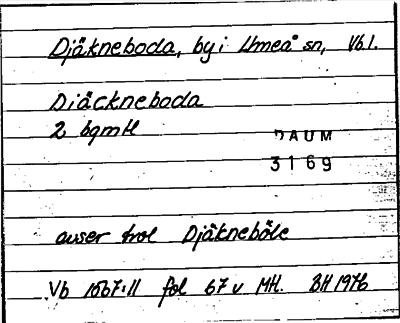 Djäkneboda, by i Umeå sn, Vb.l.
Diäckneboda
2 bgmH
DAUM
3169
avser trol Djäkneböle
Vb 1667:11 fol 67 v MH. BH 1976